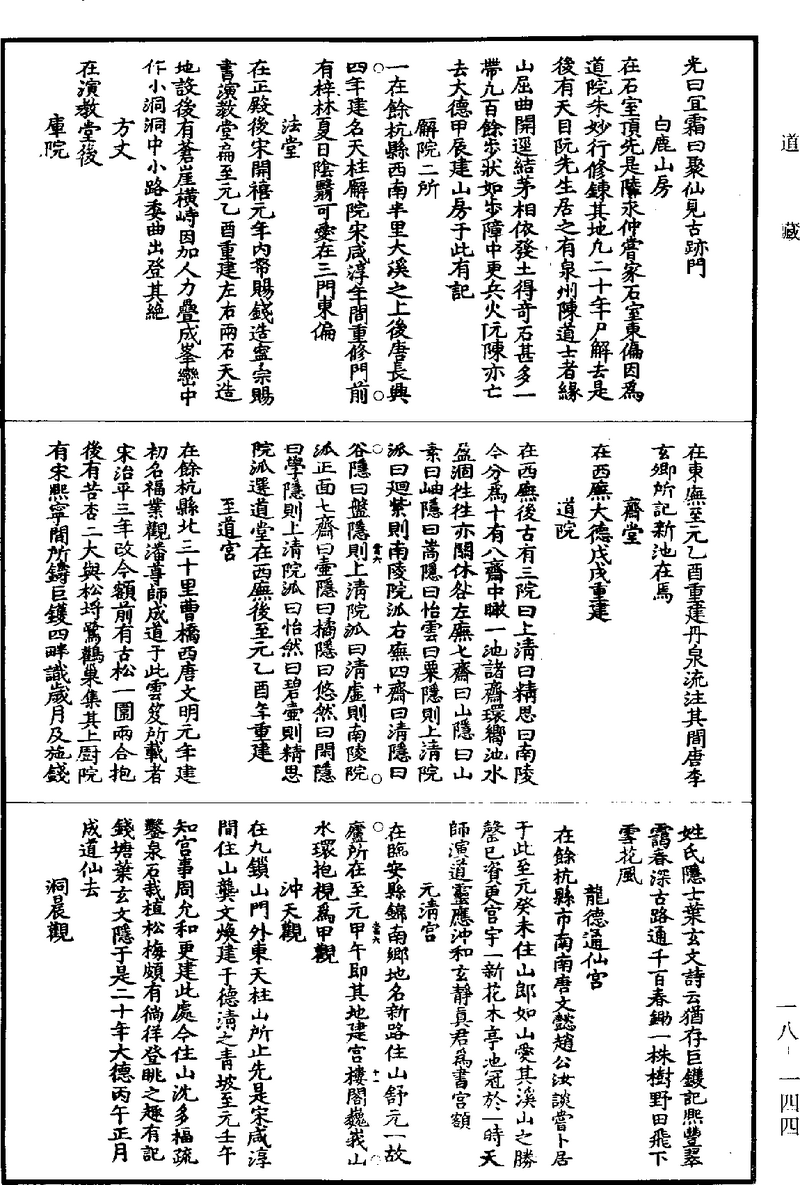 道藏
光曰宜霜曰聚仙見古跡門
白鹿山房
在石室頂先是陳永仲嘗家石室東偏因爲
道院朱妙行修鍊其地九二十年尸解去是
後有天目阮先生居之有泉州陳道士者緣
山屈曲開逕結茅相依發土得奇石甚多一
帶九百餘步狀如步障中更兵火阮陳亦亡
去大德甲辰建山房于此有記
解院二所
一在餘杭縣西南半里大溪之上後唐長興
四年建名天柱解院宋咸淳年間重修門前
有梓林夏日陰翳可愛在三門東偏
法堂
在正殿後宋開禧元年內帑賜錢造寧宗賜
書演教堂扁至元乙酉重建左右兩石天造
地設後有蒼崖橫峙因加人力疊成峯巒中
作小洞洞中小路委曲出登其絕
方丈
在演教堂後
庫院
在東廡至元乙酉重建丹泉流注其間唐李
玄卿所記新池在焉
齋堂
在西廡大德戊戌重建
道院
在西廡後古有三院曰上清曰精思曰南陵
今分爲十有八齋中瞰一池諸齋環嚮池水
盈涸徃徃亦關休咎左廡七齋曰山隱曰山
素曰岫隱曰嵩隱曰怡雲曰粟隱則上清院
派曰廻紫則南陵院派右廡四齋曰清隱曰
谷隱曰盤隱則上清院派曰清虛則南陵院
派正面七齋曰壷隱曰橘隱曰悠然曰閑隱
曰學隱則上清院派曰怡然曰碧壷則精思
院派選道堂在西廡後至元乙酉年重建
至道宮
在餘杭縣北三十里曹橋西唐文明元年建
初名福業觀潘尊師成道于此雲笈所載者
宋治平三年改今額前有古松一園兩合抱
後有苦杏二大與松埒鷺鸛巢集其上厨院
有宋熙寧間所鑄巨鑊四畔識歲月及施錢
姓氏隱士葉玄文詩云猶存巨鑊記熙豐翠
靄春深古路通千百春鋤一株樹野田飛下
雪花風
龍德通仙宮
在餘杭縣市南南唐文懿趙公汝談嘗卜居
于此至元癸未住山郎如山愛其溪山之勝
罄已資更宮宇一新花木亭池冠於一時天
師演道靈應沖和玄靜真君爲書宮額
元清宮
在臨安縣錦南鄉地名新路住山舒元一故
廬所在至元甲午即其地建宮樓閣巍峩山
水環抱視爲甲觀
沖天觀
在九鎖山門外東天柱山所止先是宋咸淳
間住山龔文煥建于德清之青坡至元壬午
知宮事周允和更建此處今住山沈多福疏
鑿泉石栽植松梅頗有徜徉登眺之趣有記
錢塘葉玄文隱于是二十年大德丙午正月
成道仙去
洞晨觀
一八-一四四